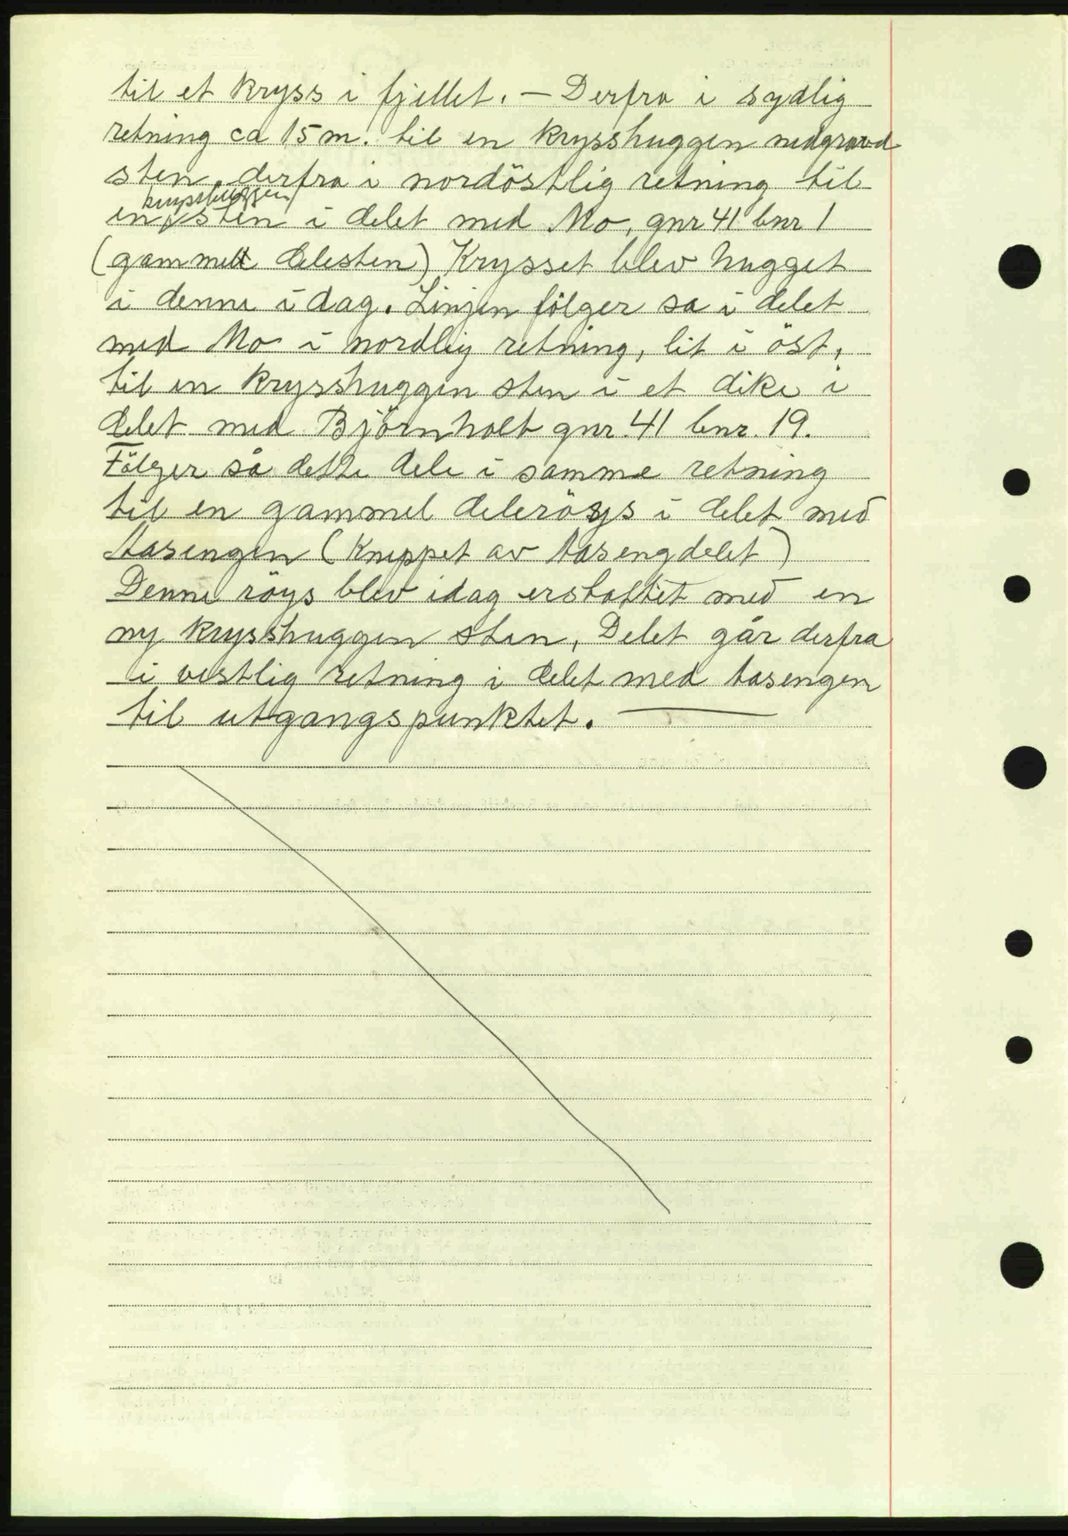 til et kryss i fjellet. — Derfra i sydlig
retning ca 15 m. til en krysshuggen nedgravd
sten, derfra i nordöstlig retning til
krysshuggen
en sten i delet med Mo, gnr 41 bnr 1
(gammelt delesten) Krysset blev hugget
i denne i dag. Linjen fölger sa i delet
med Mo i nordlig retning, lit i öst,
til en krysshuggen sten i et dike i
delet med Björnholt gnr. 41 bnr. 19.
Fölger så dette dele i samme retning
til en gammel deleröys i delet med
Aasengen (Knippet av Aasengdelet)
Denne röys blev idag erstattet med en
ny krysshuggen sten, Delet går derfra
i vestlig retning i delet med Aasengen
til utgangspunktet.